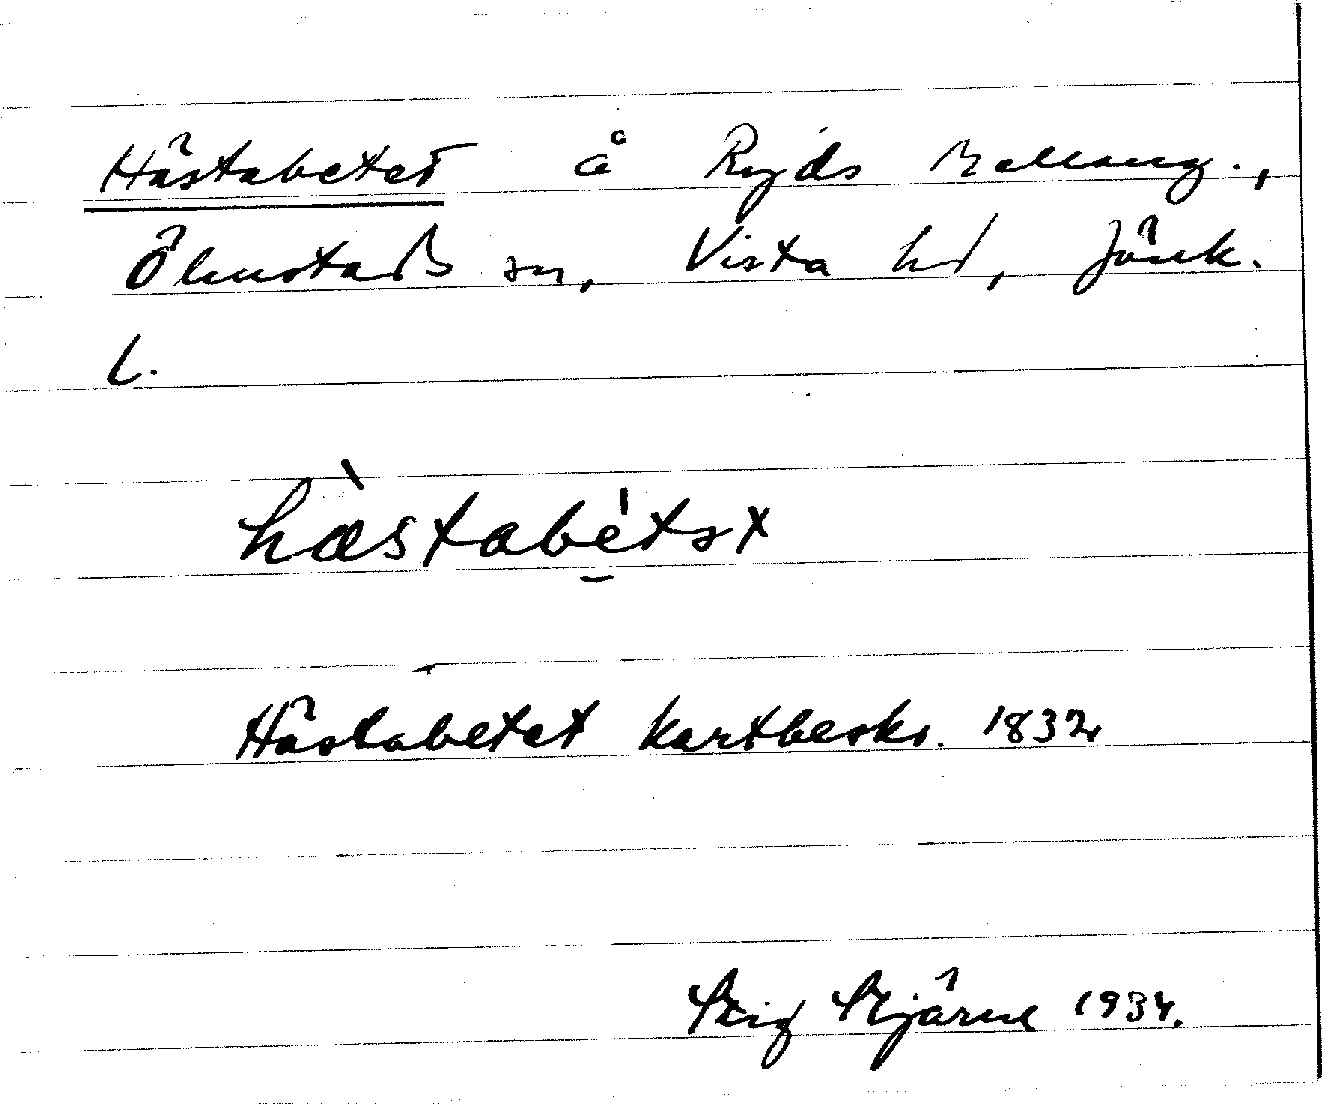 Hästabetet å Ryds Mellang.,
Ölmstads sn, Vista hd, Jönk.
l.
hæstabetət
Hästabetet Kartbeskr. 1832
Stig Stjärne 1934.